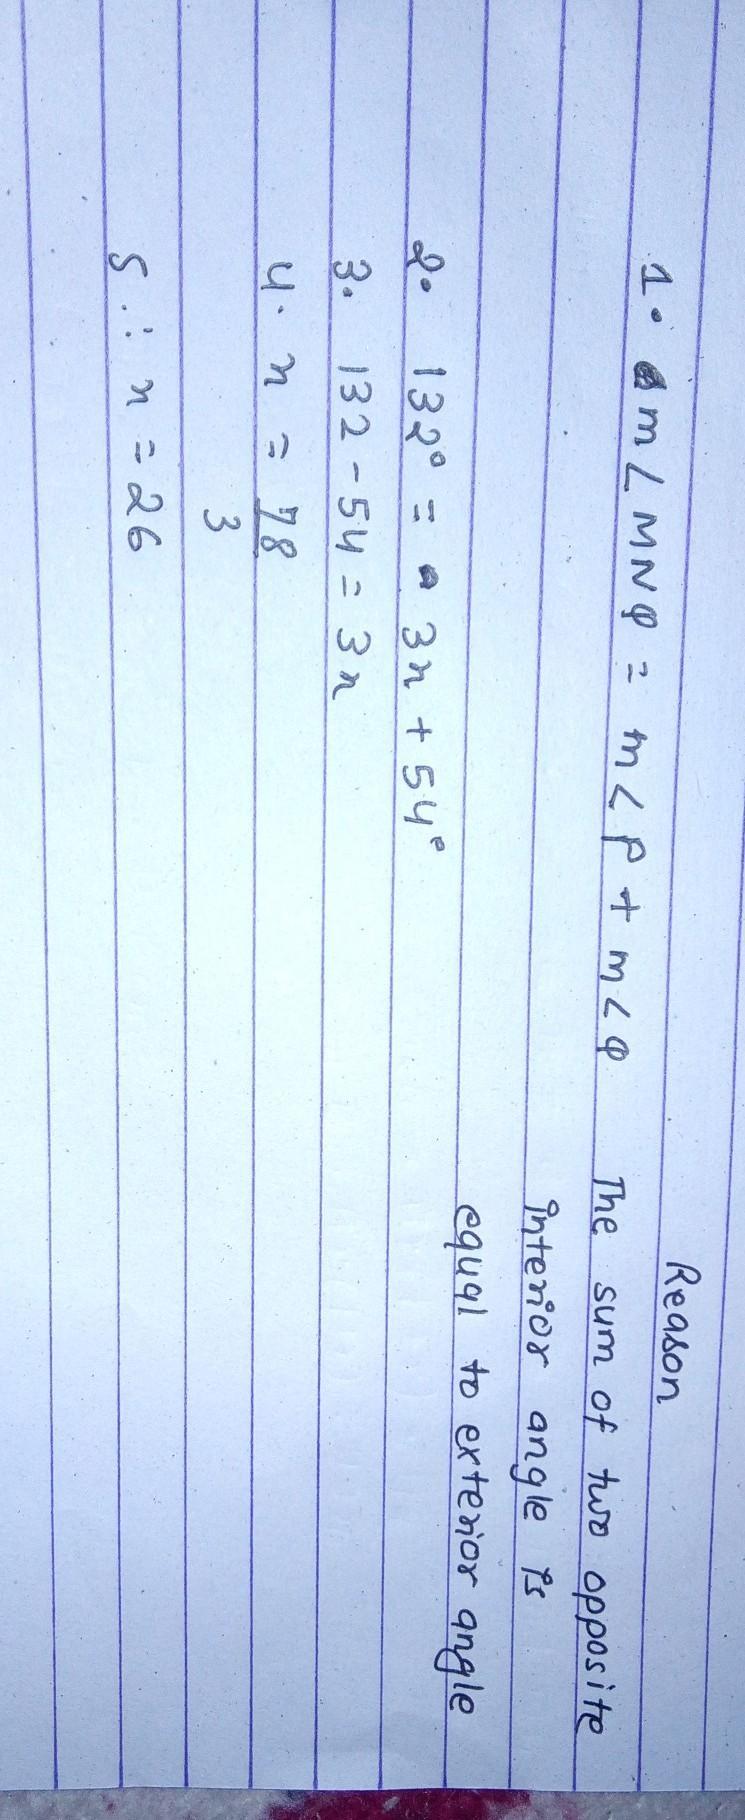 Reason
1. m∠MNQ = m<P + m<Q The sum of two opposite
interior angle is
equal to exterior angle
2. 132° = 3x + 54°
3. 132 - 54 = 3x
4. x = 78
3
5 ∴ x = 26